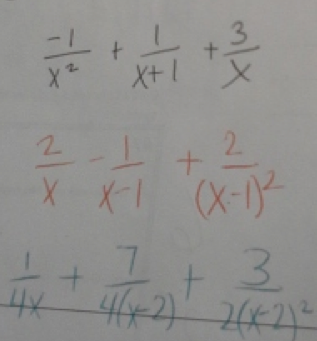 -1/x² + 1/x+1 + 3/x
2/x - 1/x-1 + 2/(x-1)²
1/4x + 7/4(x-2) + 3/2(x-2)²